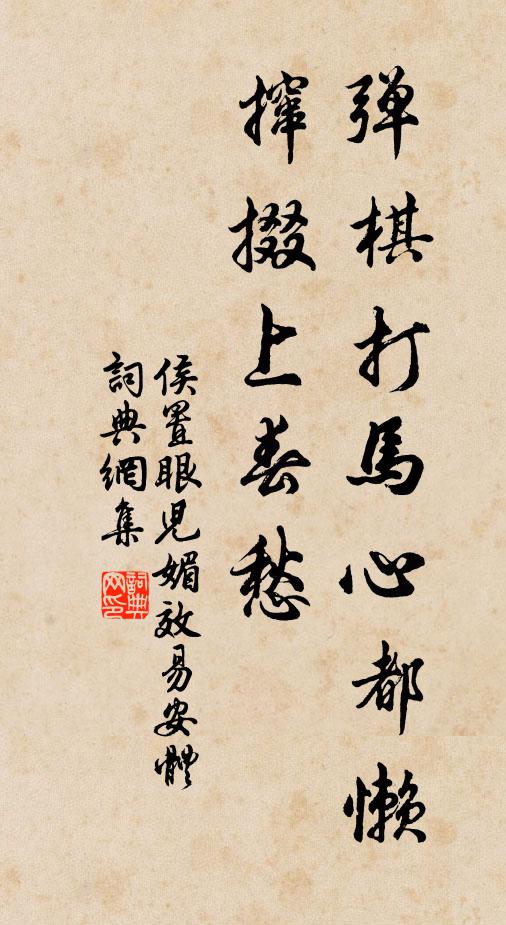 弹棋打馬心都懒
撺掇上春愁
侯置眼児媚效易安體
詞典網集
詞典網印